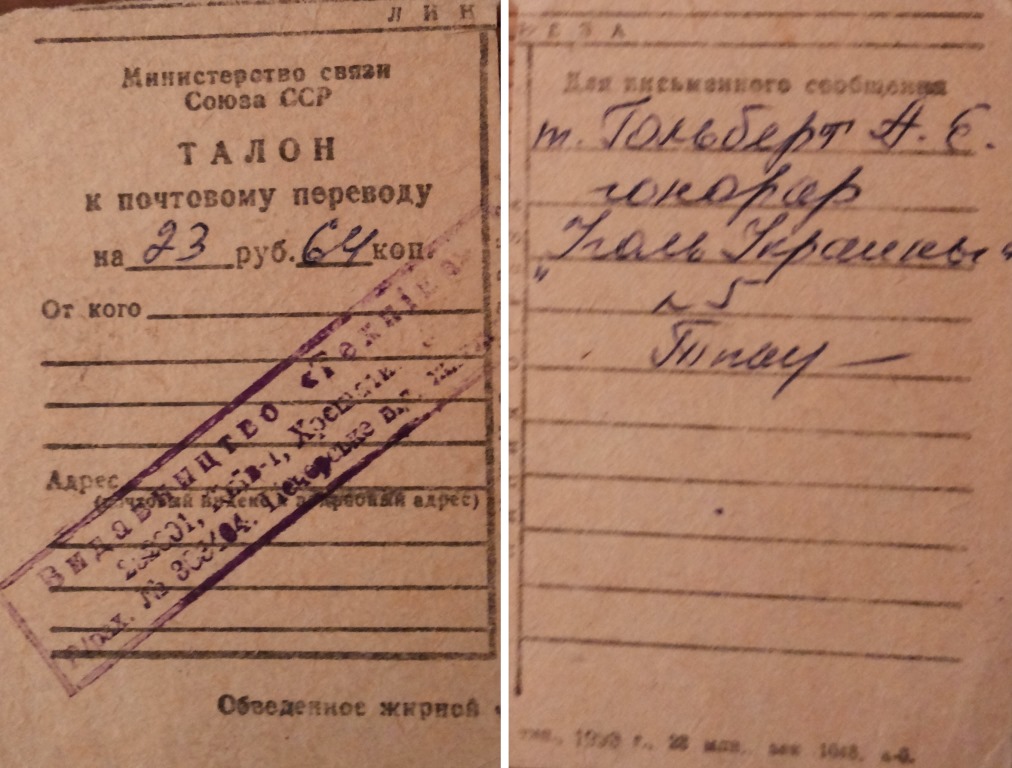 ЛИН
Министерство связи
Союза ССР
ТАЛОН
к почтовому переводу
на 23 руб. 64 коп.
От кого
Адрес
(почтовый индекс и подробный адрес)
Видавництво «Техніка»
252601, Київ-1, Хрещатик
Р/рах. № 303404. Печерське від.
Обведенное жирной
ЕЗА
Для письменного сообщения
т. Гольберт А. Е.
гонорар
"Уголь Украины"
№5
1990 г., 28 млн, зак 1648, к-6.